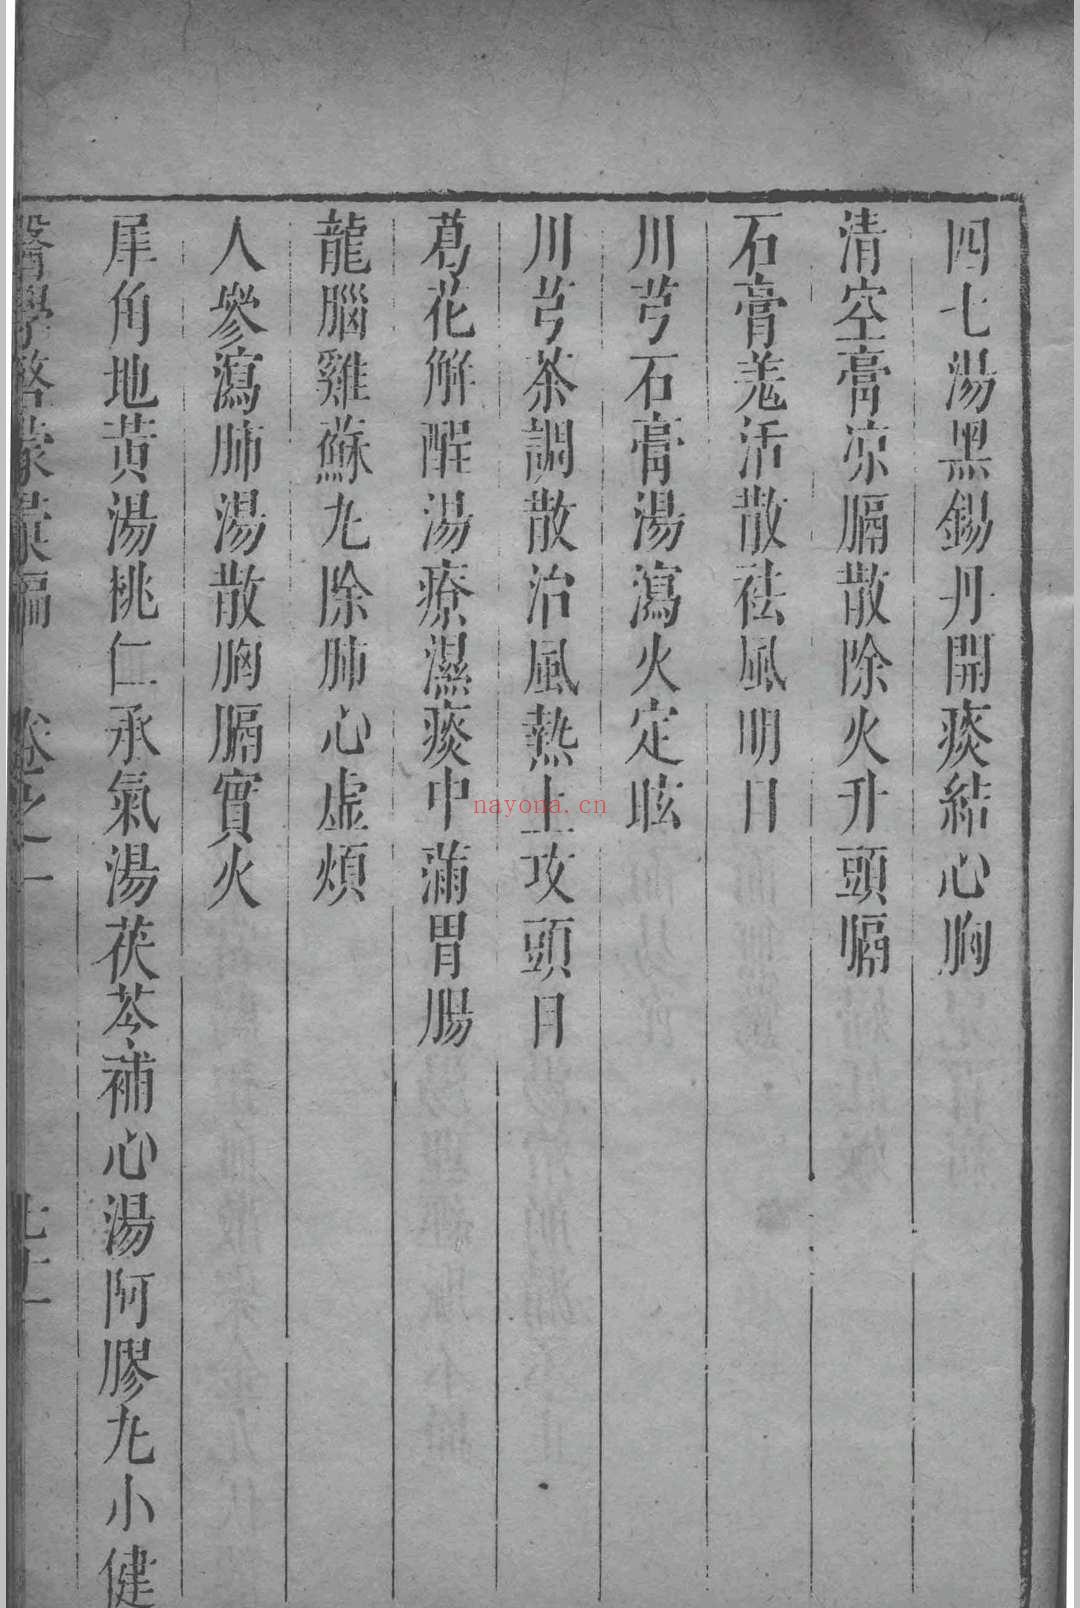 四七湯黑錫丹開痰結心胸
清空膏凉膈散除火升頭膈
石膏羗活散祛風明目
川芎石膏湯瀉火定眩
川芎茶調散治風熱上攻頭目
葛花解酲湯療濕痰中滿胃腸
龍腦雞蘇丸除肺心虛煩
人參瀉肺湯散胸膈實火
犀角地黃湯桃仁承氣湯茯苓補心湯阿膠丸小健
醫學啓蒙彙編 卷之一
nayona.cn